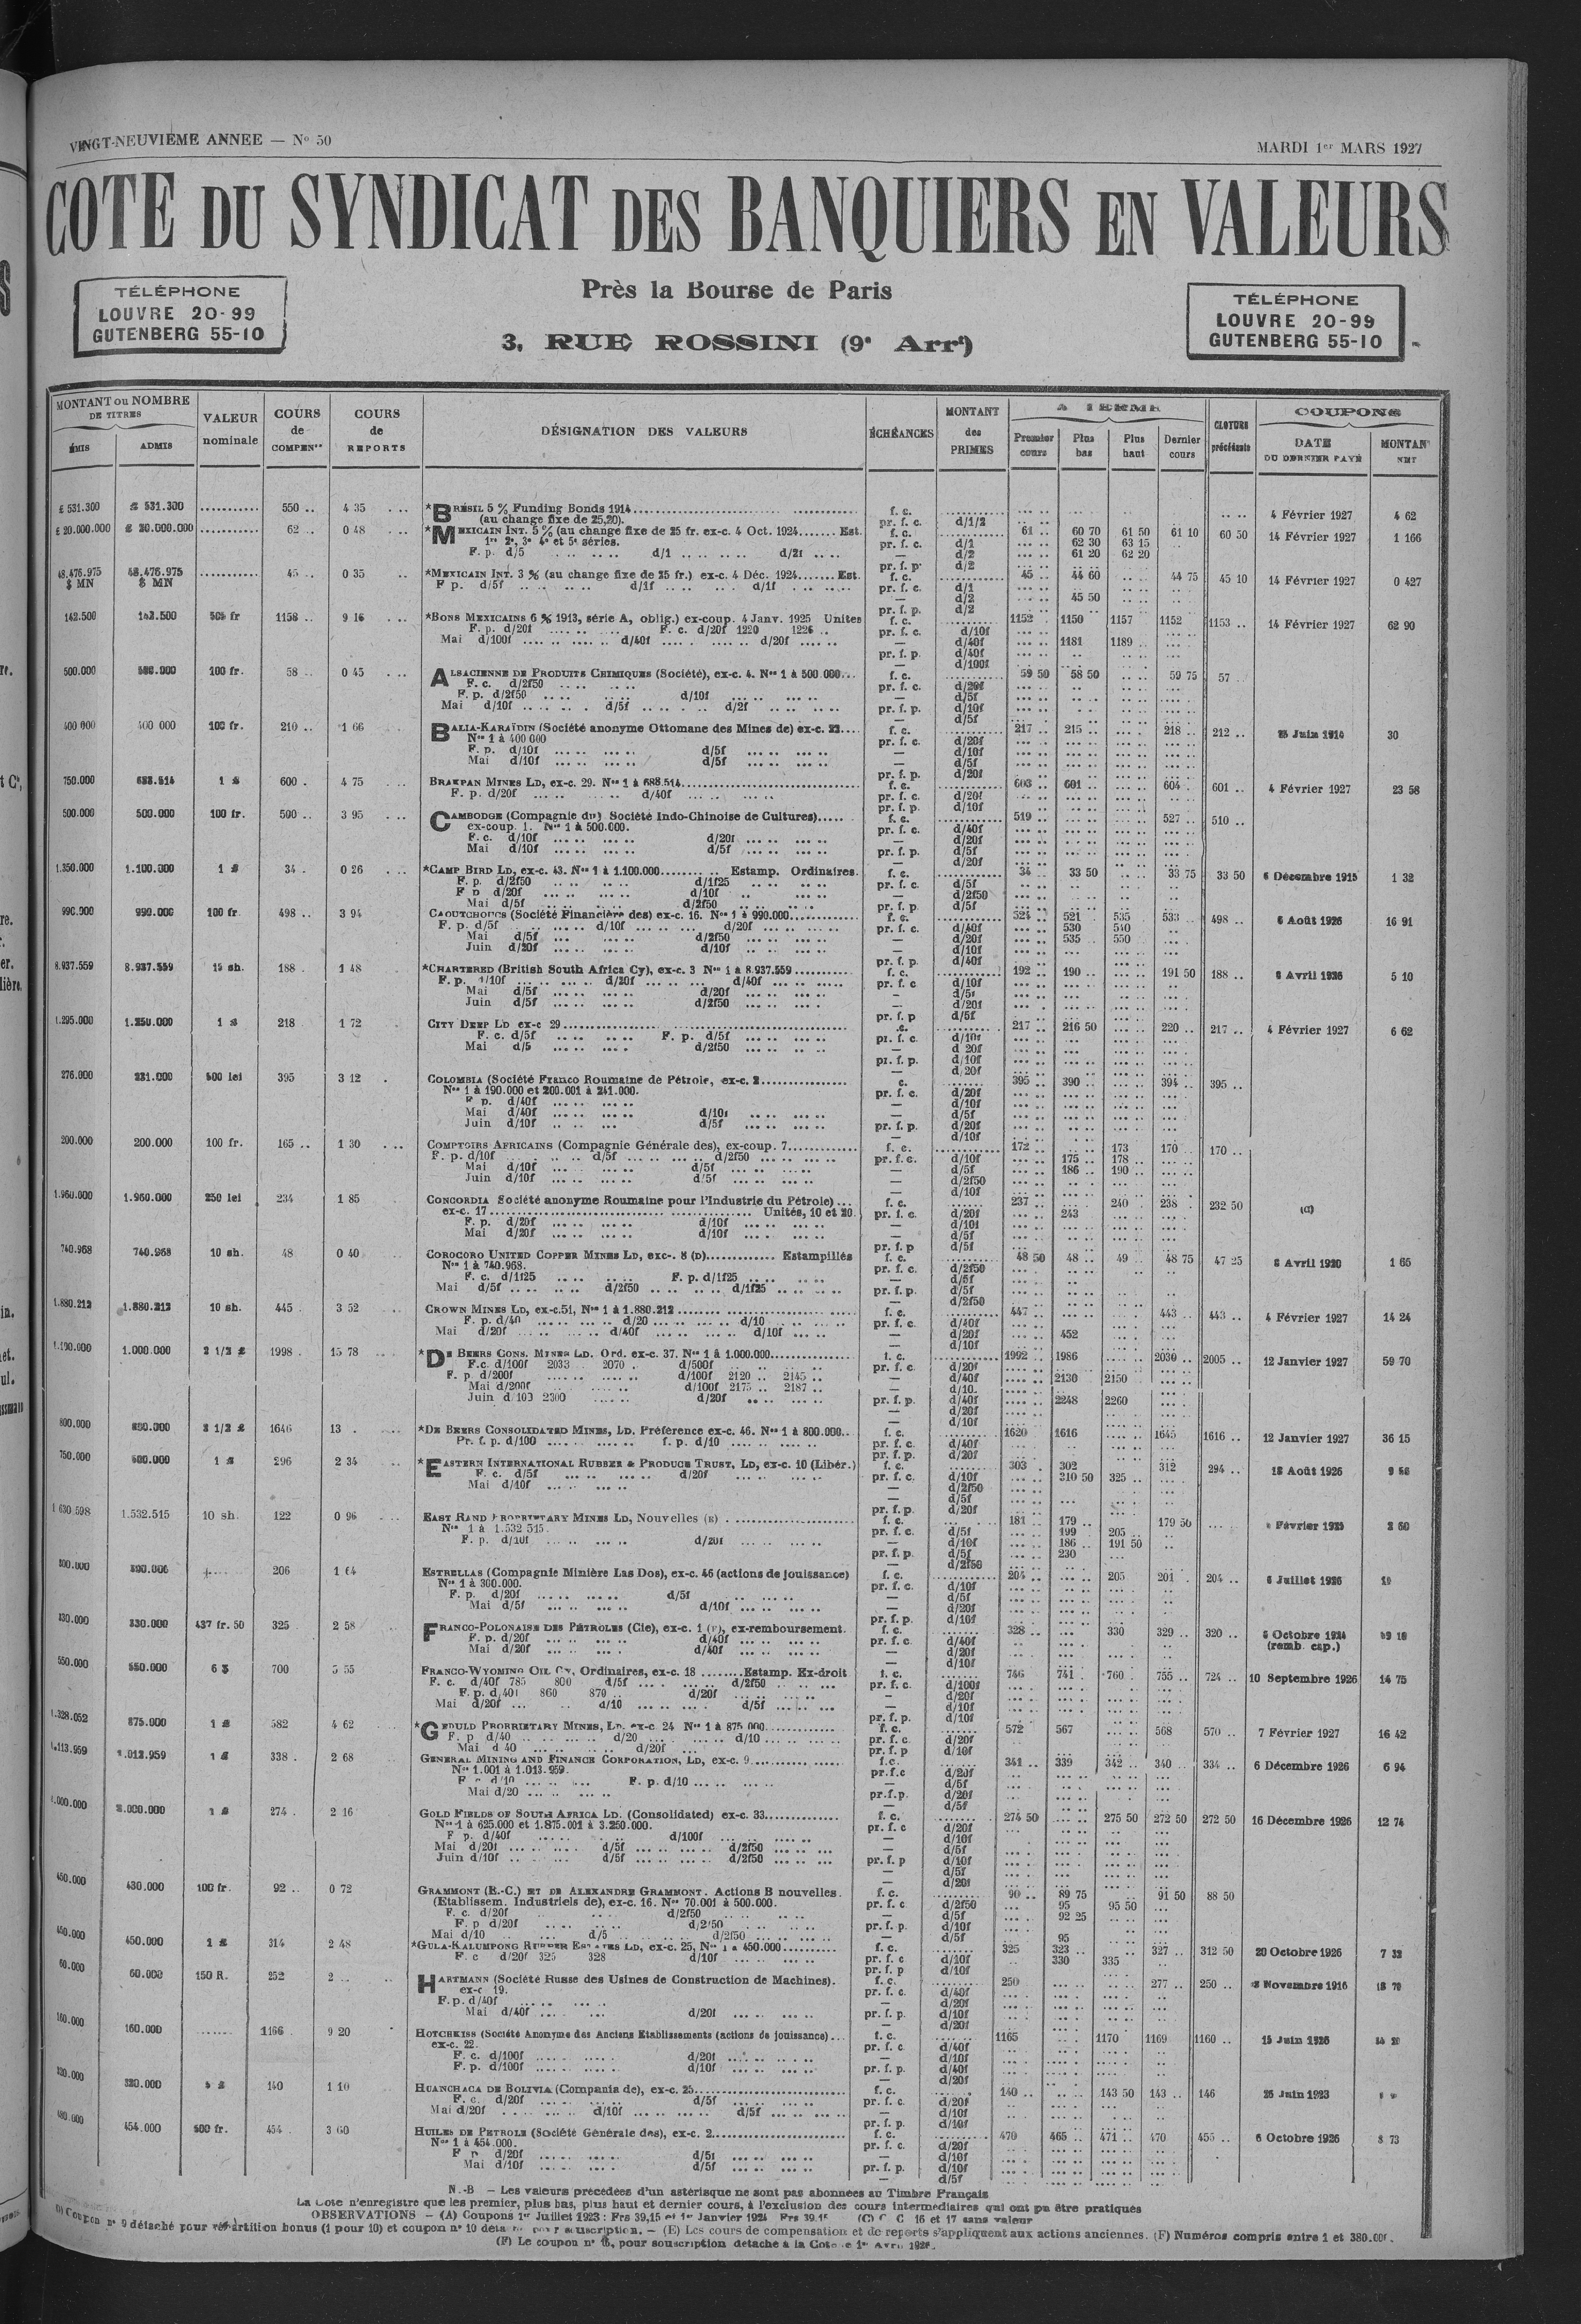 VINGT-NEUVIÈME ANNEE — Nº 50
MARDI 1er MARS 1927
COTE DU SYNDICAT DES BANQUIERS EN VALEURS
TÉLÉPHONE
LOUVRE 20-99
GUTENBERG 55-10
Près la Bourse de Paris
3, RUE ROSSINI (9e Arrt)
TÉLÉPHONE
LOUVRE 20-99
GUTENBERG 55-10
MONTANT ou NOMBRE DE TITRES
ÉMIS ADMIS
VALEUR nominale
COURS de COMPENon
COURS de REPORTS
DÉSIGNATION DES VALEURS
ÉCHÉANCES
MONTANT des PRIMES
A TERME
Premier cours Plus bas Plus haut Dernier cours
CLOTURE précédente
COUPONS
DATE DU DERNIER PAYÉ
MONTANT NET
£ 531.300 £ 531.300 ........... 550 .. 4 35 *BRÉSIL 5 % Funding Bonds 1914 f. c. 4 Février 1927 4 62
(au change fixe de 25,20). pr. f. c. d/1/2
£ 20.000.000 £ 20.000.000 ........... 62 .. 0 48 *MEXICAIN INT. 5 % (au change fixe de 25 fr. ex-c. 4 Oct. 1924....... Est. f. c. 61 .. 60 70 61 50 61 10 60 50 14 Février 1927 1 166
1re 2e, 3e 4e et 5e séries. pr. f. c. d/1 62 30 63 15
F. p. d/5 d/1 d/2f — d/2 61 20 62 20
pr. f. p. d/2
48.476.975 $ MN 48.476.975 $ MN ........... 45 .. 0 35 *MEXICAIN INT. 3 % (au change fixe de 25 fr.) ex-c. 4 Déc. 1924....... Est. f. c. 45 .. 44 60 44 75 45 10 14 Février 1927 0 427
F p. d/5f d/1f d/1f pr. f. c. d/1
— d/2 45 50
pr. f. p. d/2
142.500 142.500 505 fr 1158 .. 9 16 *BONS MEXICAINS 6 % 1913, série A, oblig.) ex-coup. 4 Janv. 1925 Unités f. c. 1152 . 1150 1157 1152 1153 .. 14 Février 1927 62 90
F. p. d/20f F. c. d/20f 1220 1226 .. pr. f. c. d/10f
Mai d/100f d/40f d/20f — d/40f 1181 1189
pr. f. p. d/40f
— d/100f
500.000 100 fr. 58 .. 0 45 ALSACIENNE DE PRODUITS CHIMIQUES (Société), ex-c. 4. Nos 1 à 500.000... f. c. 59 50 58 50 59 75 57
F. c. d/2f50 pr. f. c. d/20f
F. p. d/2f50 d/10f — d/5f
Mai d/10f d/5f d/2f pr. f. p. d/10f
— d/5f
400 000 400 000 100 fr. 210 .. 1 66 BALIA-KARAÏDIN (Société anonyme Ottomane des Mines de) ex-c. 23.... f. c. 217 .. 215 .. 218 .. 212 .. 30
Nos 1 à 400 000 pr. f. c. d/20f
F. p. d/10f d/5f — d/10f
Mai d/10f d/5f — d/5f
pr. f. p. d/20f
750.000 688.514 1 £ 600 . 4 75 BRAKPAN MINES LD, ex-c. 29. Nos 1 à 688.514 f. c. 603 .. 601 .. 604 . 601 .. 4 Février 1927 23 58
F. p. d/20f d/40f pr. f. c. d/20f
pr. f. p. d/10f
500.000 500.000 100 fr. 500 .. 3 95 CAMBODGE (Compagnie du) Société Indo-Chinoise de Cultures)..... f. c. 519 .. 527 .. 510 ..
ex-coup. 1. Nos 1 à 500.000. pr. f. c. d/40f
F. c. d/10f d/20f — d/20f
Mai d/10f d/5f pr. f. p. d/5f
— d/20f
1.350.000 1.100.000 1 £ 34 . 0 26 *CAMP BIRD LD, ex-c. 43. Nos 1 à 1.100.000 Estamp. Ordinaires. f. c. 34 .. 33 50 33 75 33 50 6 Décembre 1915 1 32
F. p. d/2f50 d/1f25 pr. f. c. d/5f
F p d/20f d/10f — d/2f50
Mai d/5f d/2f50 pr. f. p. d/5f
990.000 990.000 100 fr. 498 .. 3 94 CAOUTCHOUCS (Société Financière des) ex-c. 16. Nos 1 à 990.000 f. c. 524 521 535 533 .. 498 .. 6 Août 1926 16 91
F. p. d/5f d/10f d/20f pr. f. c. d/40f 530 540
Mai d/5f d/2f50 — d/20f 535 550
Juin d/20f d/10f — d/10f
pr. f. p. d/40f
8.937.559 8.937.559 15 sh. 188 . 1 48 *CHARTERED (British South Africa Cy), ex-c. 3 Nos 1 à 8.937.559 f. c. 192 .. 190 .. 191 50 188 .. 8 Avril 1926 5 10
F. p. d/10f d/20f d/40f pr. f. c d/10f
Mai d/5f d/20f — d/5f
Juin d/5f d/2f50 — d/20f
pr. f. p d/5f
1.295.000 1.250.000 1 £ 218 1 72 CITY DEEP LD ex-c 29 217 .. 216 50 220 .. 217 .. 4 Février 1927 6 62
F. c. d/5f F. p. d/5f pr. f. c. d/10f
Mai d/5 d/2f50 — d 20f
pr. f. p. d/10f
— d/20f
276.000 231.000 500 lei 395 3 12 COLOMBIA (Société Franco Roumaine de Pétrole, ex-c. 2 395 .. 390 .. 394 .. 395 ..
Nos 1 à 190.000 et 200.001 à 241.000. pr. f. c. d/20f
F p. d/40f — d/10f
Mai d/40f d/10f — d/5f
Juin d/10f d/5f pr. f. p. d/20f
— d/10f
200.000 200.000 100 fr. 165 .. 1 30 COMPTOIRS AFRICAINS (Compagnie Générale des), ex-coup. 7 f. c. 172 173 170 .. 170 ..
F. p. d/10f d/5f d/2f50 pr. f. c. d/10f 175 .. 178
Mai d/10f d/5f — d/5f 186 190
Juin d/10f d/5f — d/2f50
— d/10f
1.960.000 1.960.000 250 lei 234 1 85 CONCORDIA Société anonyme Roumaine pour l'Industrie du Pétrole) ... f. c. 237 .. 240 . 238 . 232 50
ex-c. 17 Unités, 10 et 20. pr. f. c. d/20f 243
F. p. d/20f d/10f — d/10f
Mai d/20f d/10f — d/5f
pr. f. p d/5f
740.968 740.968 10 sh. 48 0 40 COROCORO UNITED COPPER MINES LD, exc-. 8 (D) Estampillés f. c. 48 50 48 .. 49 48 75 47 25 8 Avril 1920 1 65
Nos 1 à 740.968. pr. f. c. d/2f50
F. c. d/1f25 F. p. d/1f25 — d/5f
Mai d/5f d/2f50 d/1f25 pr. f. p. d/5f
— d/2f50
1.880.212 1.880.212 10 sh. 445 . 3 52 CROWN MINES LD, ex-c.51, Nos 1 à 1.880.212 f. c. 447 443 .. 443 .. 4 Février 1927 14 24
F. p. d/40 d/20 d/10 pr. f. c. d/40f
Mai d/20f d/40f d/10f — d/20f 452
— d/10f
1.000.000 2 1/2 £ 1998 . 15 78 *DE BEERS CONS. MINES LD. Ord. ex-c. 37. Nos 1 à 1.000.000 1992 .. 1986 2030 .. 2005 .. 12 Janvier 1927 59 70
F.c. d/100f 2033 2070 . d/500f pr. f. c. d/20f
F. p. d/200f d/100f 2120 .. 2145 .. — d/40f 2130 2150
Mai d/200f d/100f 2175 .. 2187 .. — d/10.
Juin d/100 2300 d/20f pr. f. p. d/40f 2248 2260
— d/20f
— d/10f
800.000 2 1/2 £ 1646 13 . *DE BEERS CONSOLIDATED MINES, LD. Préférence ex-c. 46. Nos 1 à 800.000.. f. c. 1620 1616 1645 1616 .. 12 Janvier 1927 36 15
Pr. f. p. d/100 f. p. d/10 pr. f. c. d/40f
pr. f. p. d/20f
750.000 600.000 1 £ 296 2 34 *EASTERN INTERNATIONAL RUBBER & PRODUCE TRUST, LD, ex-c. 10 (Libér.) f. c. 303 . 302 312 294 .. 18 Août 1926
F. c. d/5f d/20f pr. f. c. d/10f 310 50 325 ..
Mai d/10f — d/2f50
— d/5f
pr. f. p. d/20f
1 630 598 1.532.515 10 sh. 122 0 96 EAST RAND PROPRIETARY MINES LD, Nouvelles (E) f. c. 181 . 179 .. 179 50
Nos 1 à 1.532 515. pr. f. c. d/5f 199 205
F. p. d/10f d/20f — d/10f 186 191 50
pr. f. p. d/5f 230
— d/2f50
206 1 64 ESTRELLAS (Compagnie Minière Las Dos), ex-c. 46 (actions de jouissance) f. c. 204 .. 205 201 . 204 .. 6 Juillet 1926
Nos 1 à 300.000. pr. f. c. d/10f
F. p. d/20f d/5f — d/5f
Mai d/5f d/10f — d/20f
pr. f. p. d/10f
330.000 330.000 437 fr. 50 325 2 58 FRANCO-POLONAISE DES PÉTROLES (Cie), ex-c. 1 (F), ex-remboursement. f. c. 328 .. 330 329 .. 320 .. 6 Octobre 1924
F. p. d/20f d/40f pr. f. c. d/40f (remb. cap.)
Mai d/20f d/40f — d/20f
— d/10f
550.000 550.000 6 $ 700 5 55 FRANCO-WYOMING OIL Cy, Ordinaires, ex-c. 18 ........Estamp. Ex-droit f. c. 746 741 . 760 . 755 .. 724 .. 10 Septembre 1926 14 75
F. c. d/40f 785 800 d/5f d/2f50 pr. f. c. d/100f
F. p. d/40f 860 870 .. d/20f — d/20f
Mai d/20f d/10 d/5f — d/10f
pr. f. p. d/10f
1.328.052 875.000 1 £ 582 4 62 *GEDULD PROPRIETARY MINES, LD. ex-c. 24 Nos 1 à 875 000 f. c. 572 567 568 570 .. 7 Février 1927 16 42
F. p d/40 d/20 d/10 pr. f. c. d/20f
Mai d 40 d/20f pr. f. p d/10f
1.113.959 1.012.959 1 £ 338 . 2 68 GENERAL MINING AND FINANCE CORPORATION, LD, ex-c. 9 f.c. 341 .. 339 342 .. 340 334 .. 6 Décembre 1926 6 94
Nos 1.001 à 1.013.959. pr.f.c d/20f
F c d/10 F. p. d/10 — d/5f
Mai d/20 pr.f.p. d/20f
— d/5f
1 £ 274 . 2 16 GOLD FIELDS OF SOUTH AFRICA LD. (Consolidated) ex-c. 33 f. c. 274 50 275 50 272 50 272 50 16 Décembre 1926 12 74
Nos 1 à 625.000 et 1.875.001 à 3.250.000. pr. f. c d/20f
F p. d/40f d/100f — d/10f
Mai d/20f d/5f d/2f50 — d/5f
Juin d/10f d/5f d/2f50 pr. f. p d/10f
— d/5f
— d/20f
430.000 100 fr. 92 .. 0 72 GRAMMONT (E.-C.) ET DE ALEXANDRE GRAMMONT. Actions B nouvelles. f. c. 90 .. 89 75 91 50 88 50
(Etablissem. Industriels de), ex-c. 16. Nos 70.001 à 500.000. pr. f. c d/2f50 95 95 50
F. c. d/20f d/2f50 — d/5f 92 25
F. p d/20f d/2f50 pr. f. p. d/10f
Mai d/10 d/5 d/2f50 — d/5f 95
450.000 450.000 1 £ 314 2 48 *GULA-KALUMPONG RUBBER ESTATES LD, ex-c. 25, Nos 1 à 450.000 f. c. 325 323 .. 327 .. 312 50 20 Octobre 1926 7 32
F. c d/20f 325 328 d/10f pr. f. c d/10f 330 335
pr. f. p d/10f
60.000 60.000 150 R. 252 2 .. HARTMANN (Société Russe des Usines de Construction de Machines). f. c. 250 277 .. 250 .. Novembre 1916
ex-c 19. pr. f. c. d/40f
F. p. d/40f — d/20f
Mai d/40f d/20f pr. f. p. d/10f
— d/20f
160.000 160.000 ....... 1166 9 20 HOTCHKISS (Société Anonyme des Anciens Etablissements (actions de jouissance)... f. c. 1165 1170 1169 1160 .. 15 Juin 1926
ex-c. 22. pr. f. c. d/40f
F. c. d/100f d/20f — d/10f
F. p. d/100f d/10f pr. f. p. d/40f
— d/20f
320.000 140 1 10 HUANCHACA DE BOLIVIA (Compania de), ex-c. 25 f. c. 140 .. 143 50 143 .. 146 26 Juin 1923
F. c. d/20f d/5f pr. f. c. d/20f
Mai d/20f d/10f d/5f — d/10f
pr. f. p. d/10f
454.000 500 fr. 454 . 3 60 HUILES DE PETROLE (Société Générale des), ex-c. 2 f. c. 470 465 .. 471 .. 470 455 .. 6 Octobre 1926 8 73
Nos 1 à 454.000. pr. f. c. d/20f
F p d/20f d/5f — d/10f
Mai d/10f d/5f pr. f. p. d/10f
— d/5f
N.-B — Les valeurs précédées d'un astérisque ne sont pas abonnées au Timbre Français
La Cote n'enregistre que les premier, plus bas, plus haut et dernier cours, à l'exclusion des cours intermédiaires qui ont pu être pratiqués
OBSERVATIONS — (A) Coupons 1er Juillet 1923 : Frs 39,15 et 1er Janvier 1924 Frs 39.15 (C) C. C 16 et 17 sans valeur
Coupon nº 9 détaché pour répartition bonus (1 pour 10) et coupon nº 10 détaché pour souscription. — (E) Les cours de compensation et de reports s'appliquent aux actions anciennes. (F) Numéros compris entre 1 et 380.000.
(F) Le coupon nº 16, pour souscription détaché à la Cote le 1er Avril 1926.